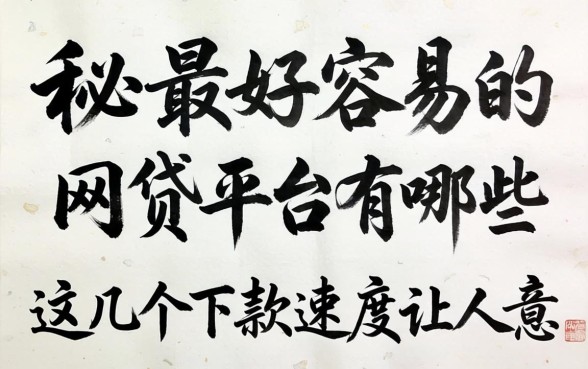 秘最好容易的
网贷平台有哪些
这几个下款速度让人意